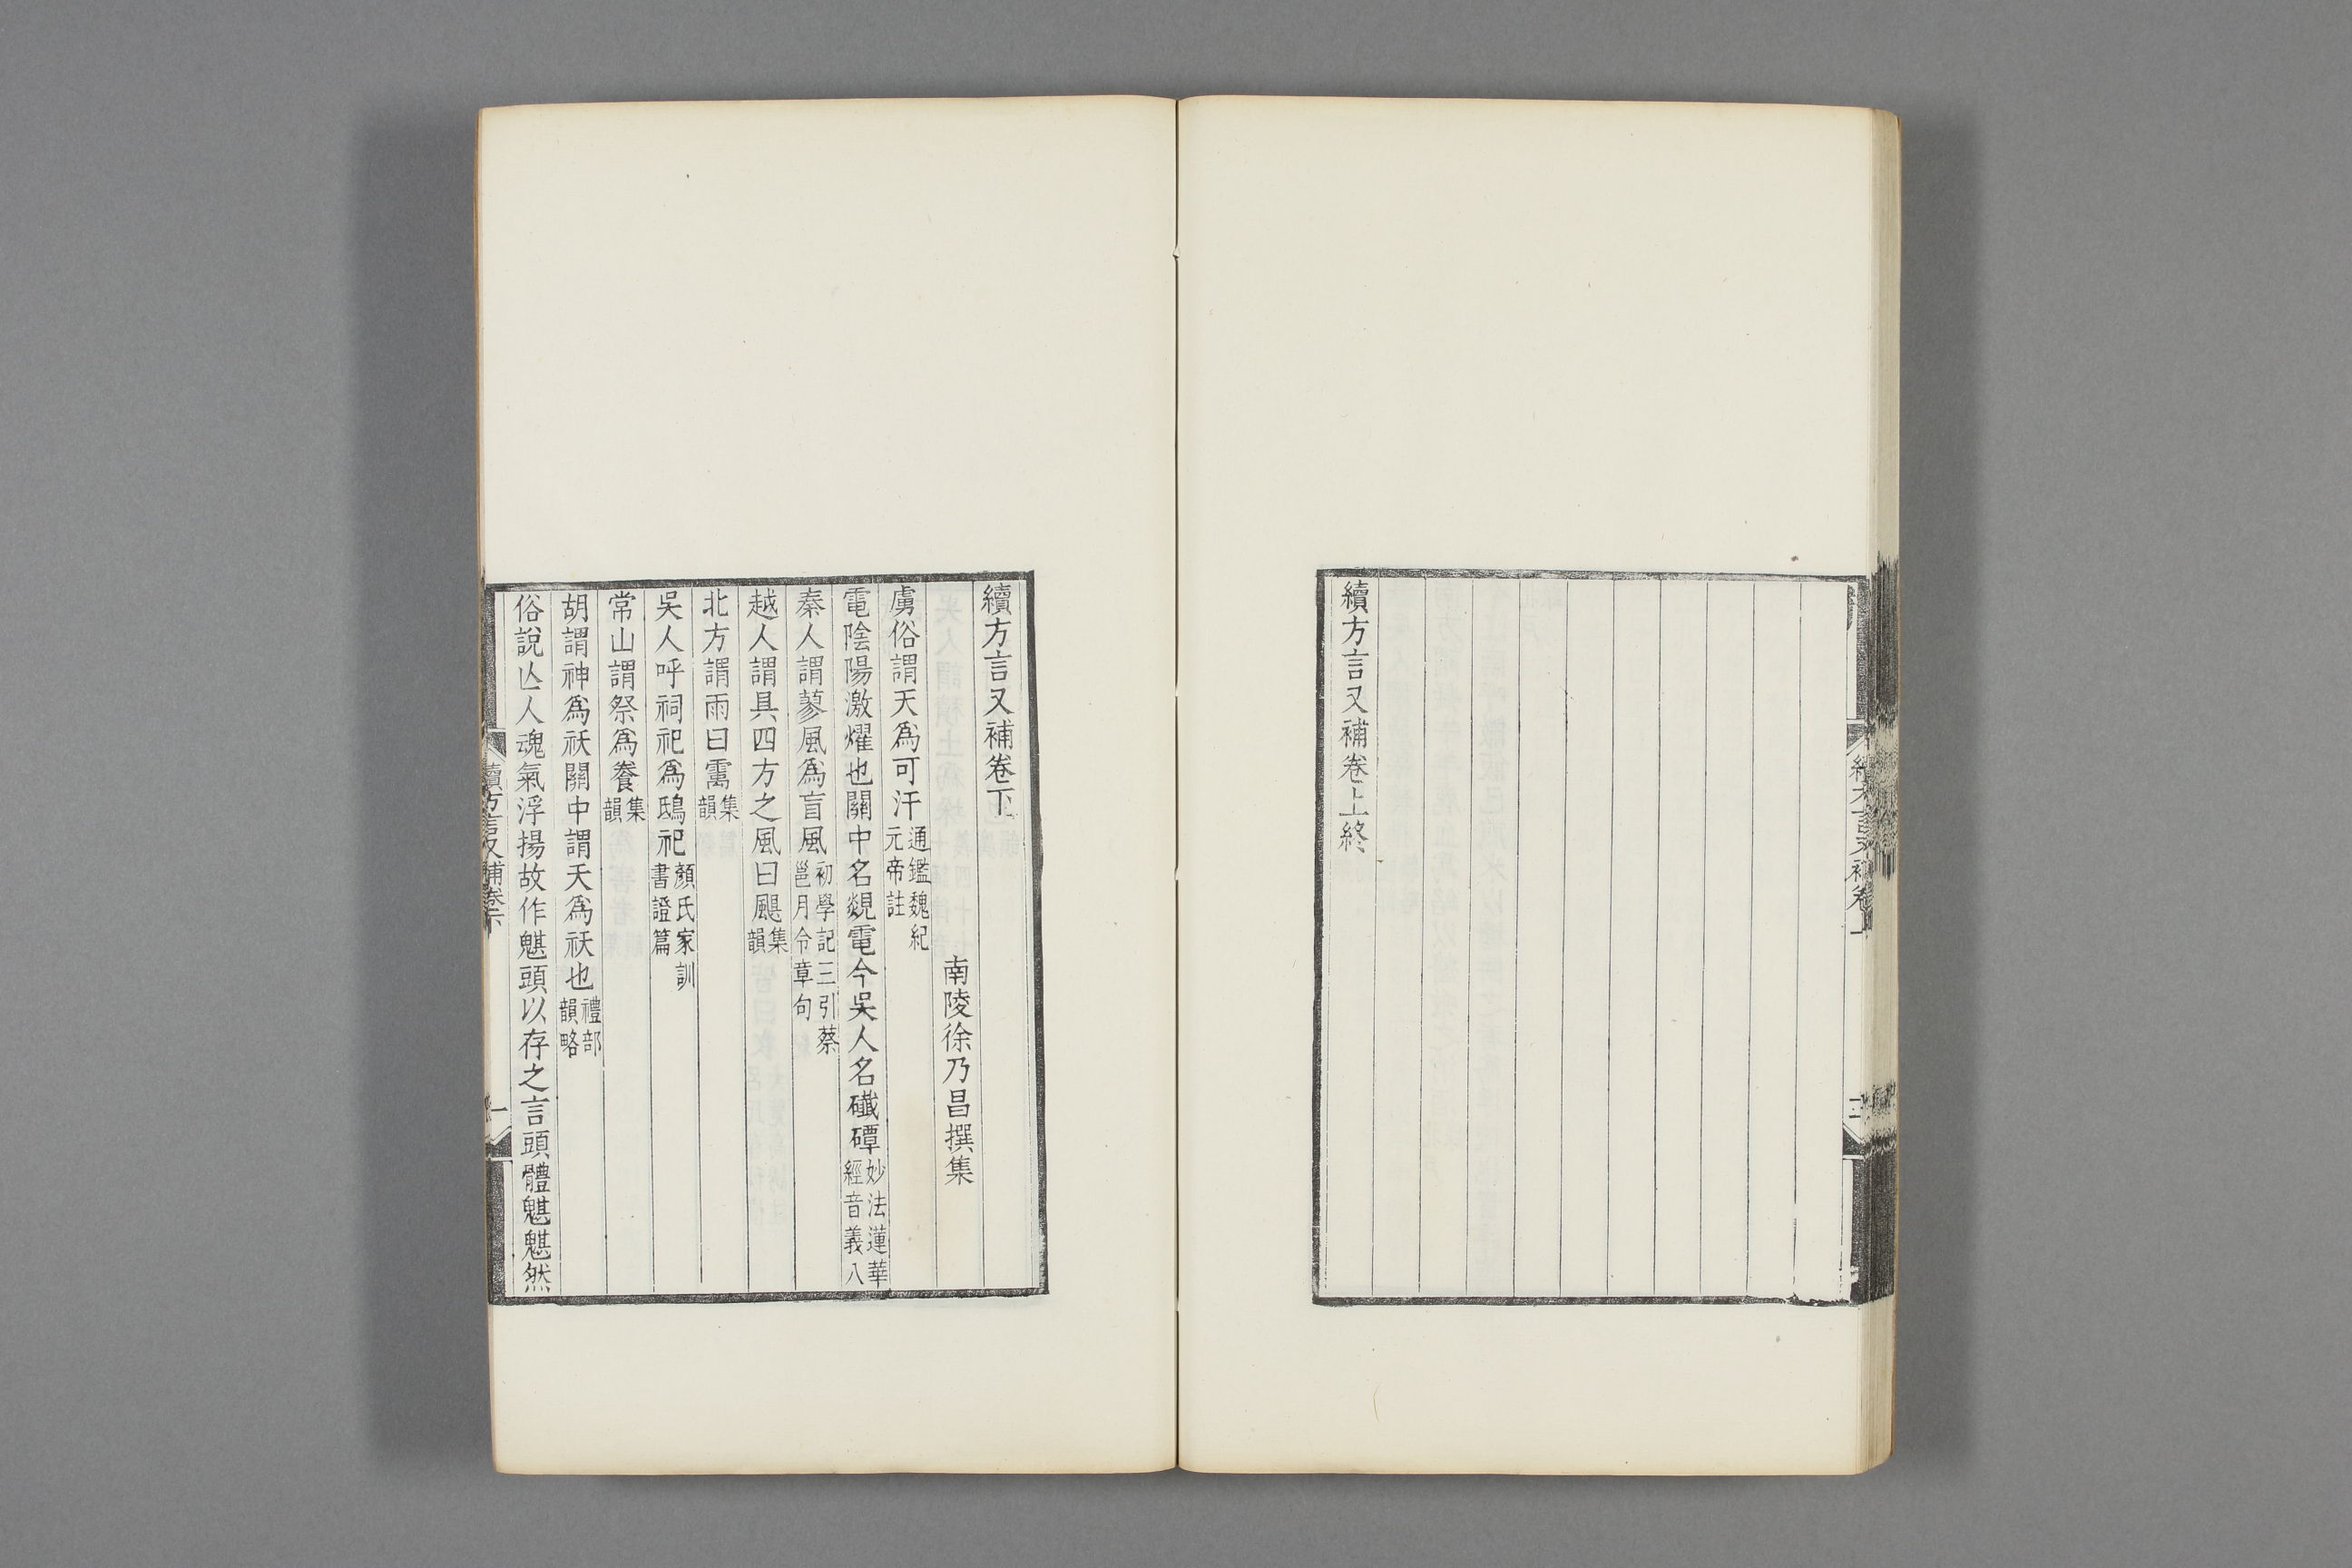 續方言又補卷上終
續方言又補卷下
南陵徐乃昌撰集
虜俗謂天爲可汗通鑑魏紀元帝註
電陰陽激燿也關中名覢電今吳人名䃱磹妙法蓮華經音義八
秦人謂蓼風爲盲風初學記三引蔡邕月令章句
越人謂具四方之風曰颶集韻
北方謂雨曰䨞集韻
吳人呼祠祀爲鴟祀顏氏家訓書證篇
常山謂祭爲餋集韻
胡謂神爲祆關中謂天爲祆也禮部韻略
俗說亾人魂氣浮揚故作魌頭以存之言頭體魌魌然
續方言又補卷下
一